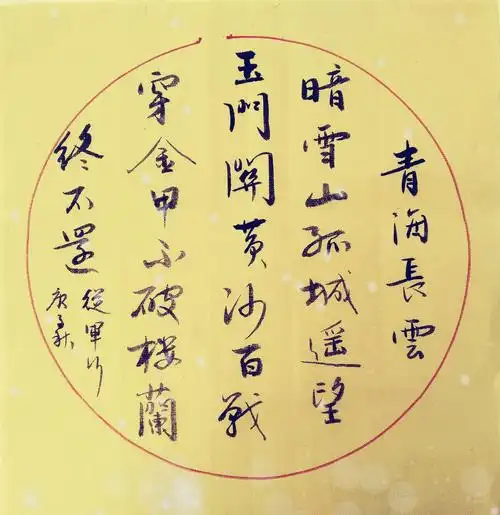 青海長雲
暗雪山孤城遥望
玉門關黄沙百戰
穿金甲不破楼蘭
終不還
從軍行
庚子秋